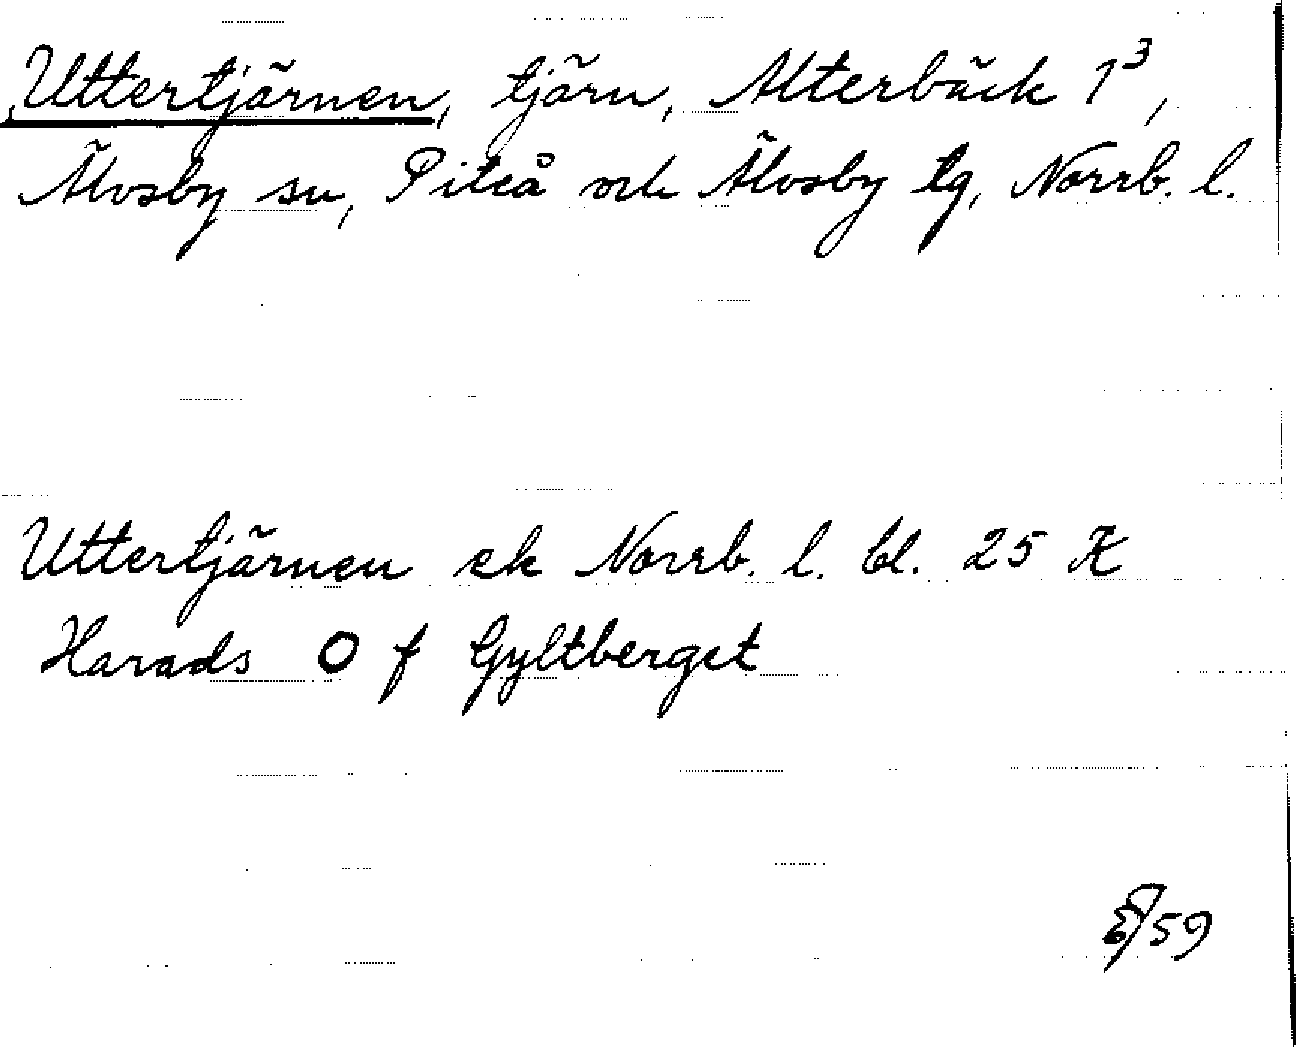 Uttertjärnen, tjärn, Alterbäck 1³,
Älvsby sn, Piteå och Älvsby tg, Norrb. l.
Uttertjärnen ek Norrb. l. bl. 25 K
Harads O f Gyltberget
/59